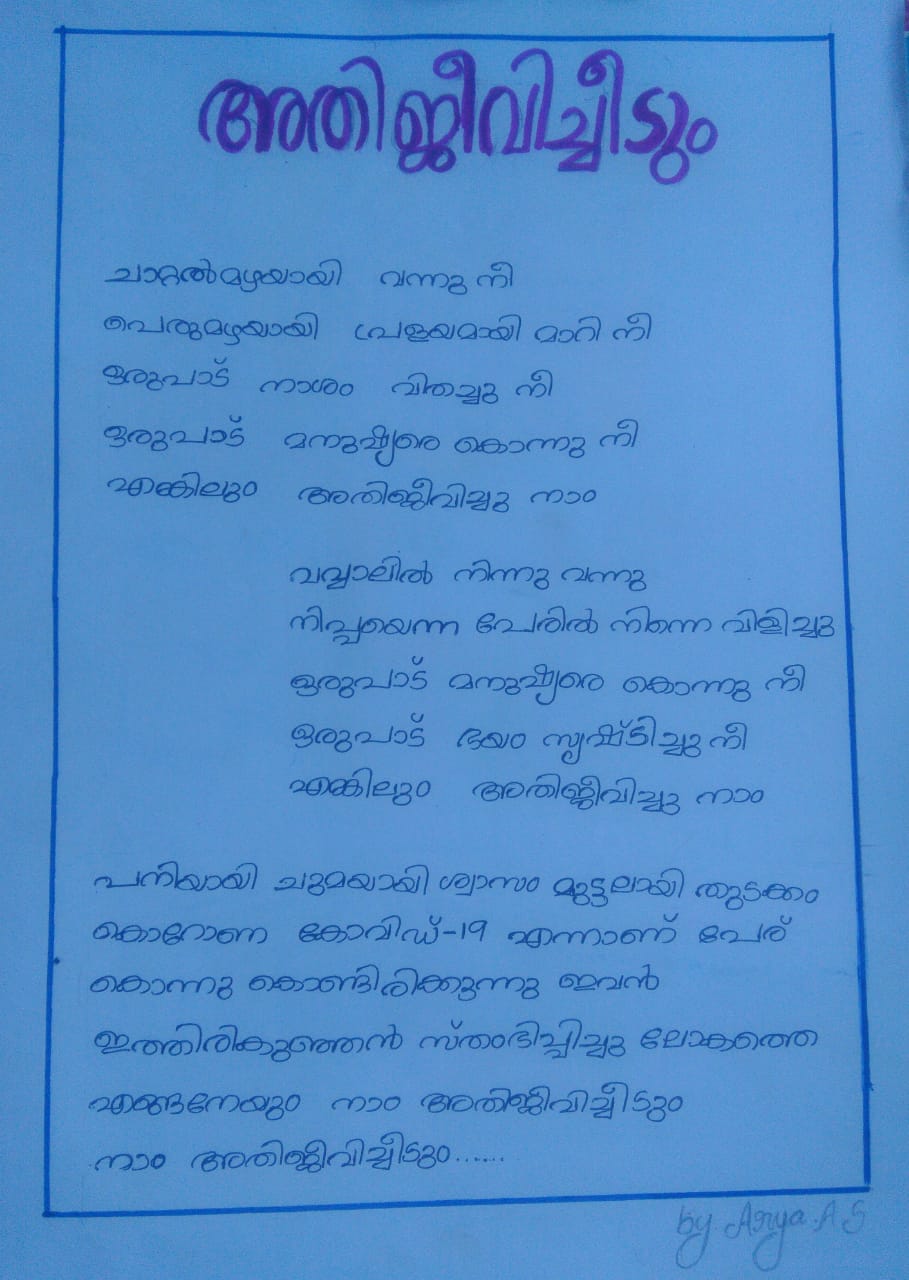 അതിജീവിച്ചീടും
ചാറ്റൽമഴയായി വന്നു നീ
പെരുമഴയായി പ്രളയമായി മാറി നീ
ഒരുപാട് നാശം വിതച്ചു നീ
ഒരുപാട് മനുഷ്യരെ കൊന്നു നീ
എങ്കിലും അതിജീവിച്ചു നാം
വവ്വാലിൽ നിന്നു വന്നു
നിപ്പയെന്ന പേരിൽ നിന്നെ വിളിച്ചു
ഒരുപാട് മനുഷ്യരെ കൊന്നു നീ
ഒരുപാട് ഭയം സൃഷ്ടിച്ചു നീ
എങ്കിലും അതിജീവിച്ചു നാം
പനിയായി ചുമയായി ശ്വാസം മുട്ടലായി തുടക്കം
കൊറോണ കോവിഡ്-19 എന്നാണ് പേര്
കൊന്നു കൊണ്ടിരിക്കുന്നു ഇവൻ
ഇത്തിരികുഞ്ഞൻ സ്തംഭിപ്പിച്ചു ലോകത്തെ
എങ്ങനേയും നാം അതിജീവിച്ചീടും
നാം അതിജീവിച്ചീടും......
by Arya. A S